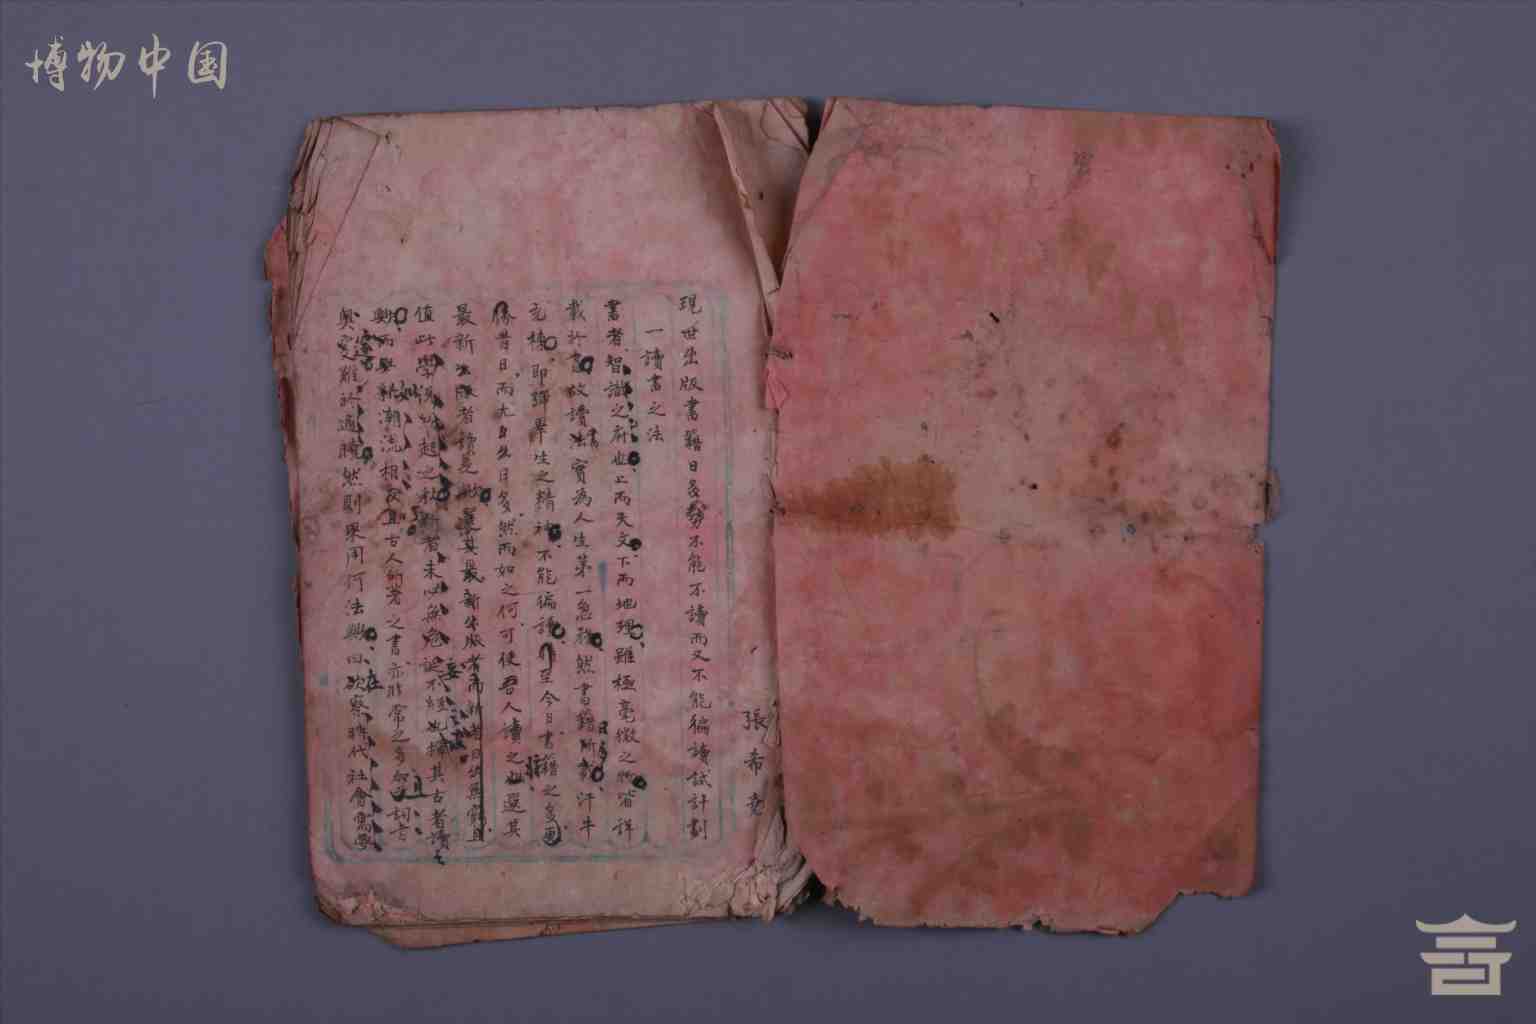 博物中国
張希堯
現世出版書籍日多勢不能不讀而又不能徧讀試計劃
一讀書之法
書者智識之府也上而天文下而地理雖極毫微之物皆詳
載於書故讀書法實為人生第一急務然書籍所載汗牛
充棟即譁畢生之精神不能徧讀至今日書籍之多更
勝昔日而尤日出日多然而如之何可使吾人讀之選其
最新出版者讀是也選其最新出版者而新者日出無窮且
值此學說紛起之秋新者未必無荒誕不經也擇其古者讀之
與新潮流相反且古人所著之書亦非常之多
奧難於通曉然則果用何法與曰欲察時代社會